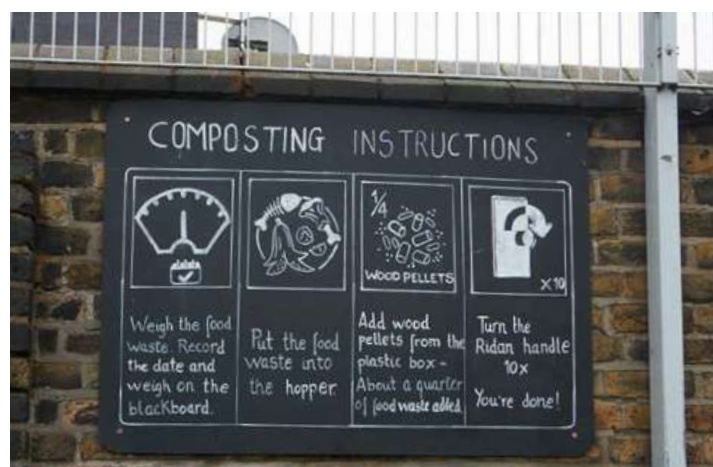 COMPOSTING INSTRUCTIONS
1/4
WOOD PELLETS
x10
Weigh the food
waste. Record
the date and
weigh on the
blackboard.
Put the food
waste into
the hopper.
Add wood
pellets from the
plastic box -
About a quarter
of food waste added.
Turn the
Ridan handle
10x
You're done!